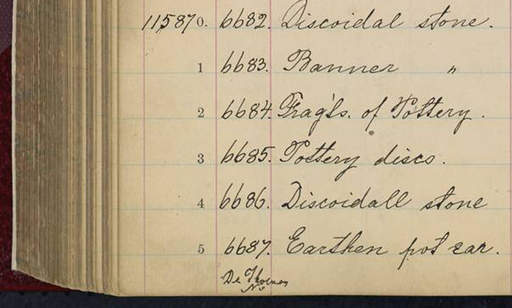 115870. 6682. Discoidal stone.
1 6683. Banner "
2 6684. Frag'ts. of Pottery.
3 6685. Pottery discs.
4 6686. Discoidall stone
5 6687. Earthen pot ear.
No.